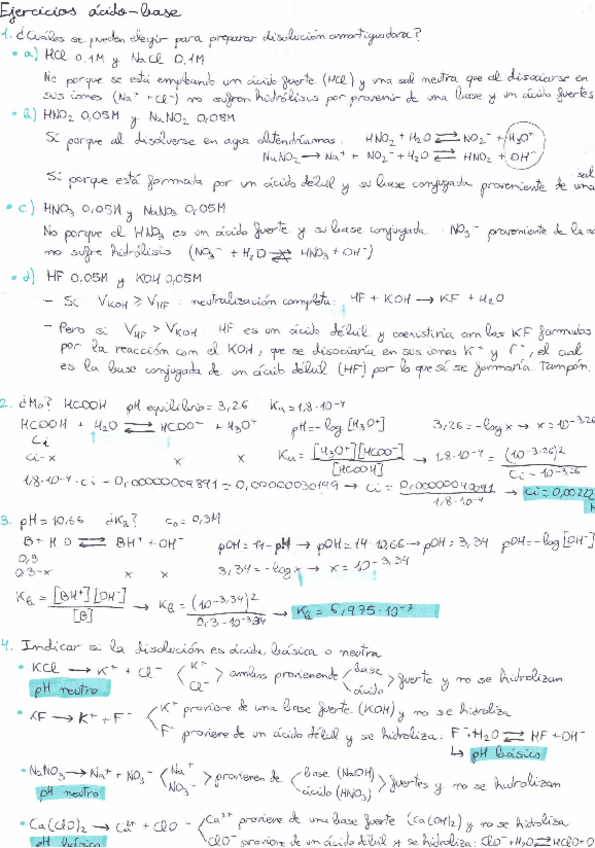 Ejercicios ácido-base
1. ¿Cuáles se pueden elegir para preparar disolución amortiguadora?
• a) HCl 0,1M y NaCl 0,1M
No porque se está empleando un ácido fuerte (HCl) y una sal neutra que al disociarse en
sus iones (Na⁺ + Cl⁻) no sufren hidrólisis por provenir de una base y un ácido fuertes
• b) HNO₂ 0,05M y NaNO₂ 0,08M
Sí porque al disolverse en agua obtendríamos: HNO₂ + H₂O ⇄ NO₂⁻ + H₃O⁺
NaNO₂ → Na⁺ + NO₂⁻ + H₂O ⇄ HNO₂ + OH⁻
Sí porque está formada por un ácido débil y su base conjugada proveniente de una sal
• c) HNO₃ 0,05M y NaNO₃ 0,05M
No porque el HNO₃ es un ácido fuerte y su base conjugada NO₃⁻ proveniente de la
no sufre hidrólisis (NO₃⁻ + H₂O ⇄ HNO₃ + OH⁻)
• d) HF 0,05M y KOH 0,05M
- Si V_KOH ≥ V_HF : neutralización completa: HF + KOH → KF + H₂O
- Pero si V_HF > V_KOH: HF es un ácido débil y coexistiría con las KF formadas
por la reacción con el KOH, que se disociaría en sus iones K⁺ y F⁻, el cual
es la base conjugada de un ácido débil (HF) por lo que sí se formaría Tampón.
2. ¿Mo? HCOOH pH equilibrio = 3,26 Ka = 1,8·10⁻⁴
HCOOH + H₂O ⇄ HCOO⁻ + H₃O⁺ pH = -log [H₃O⁺] 3,26 = -log x → x = 10⁻³·²⁶
Ci
Ci-x x x Ka = [H₃O⁺][HCOO⁻] / [HCOOH] → 1,8·10⁻⁴ = (10⁻³·²⁶)² / Ci - 10⁻³·²⁶
1,8·10⁻⁴·Ci - 0,0000000989 = 0,00000030199 → Ci = / 1,8·10⁻⁴ → Ci = 0,00222 M
3. pH = 10,66 ¿KB? c₀ = 0,3M
B + H₂O ⇄ BH⁺ + OH⁻ pOH = 14 - pH → pOH = 14 - 10,66 → pOH = 3,34 pOH = -log [OH⁻]
0,3
0,3-x x x 3,34 = -log x → x = 10⁻³·³⁴
KB = [BH⁺][OH⁻] / [B] → KB = (10⁻³·³⁴)² / 0,3 - 10⁻³·³⁴ → KB = 6,975·10⁻⁷
4. Indicar si la disolución es ácida, básica o neutra
• KCl → K⁺ + Cl⁻ < K⁺ Cl⁻ > ambos provienen de < base ácido > fuerte y no se hidrolizan
pH neutro
• KF → K⁺ + F⁻ < K⁺ proviere de una base fuerte (KOH) y no se hidroliza
F⁻ proviere de un ácido débil y se hidroliza: F⁻ + H₂O ⇄ HF + OH⁻
↳ pH básico
• NaNO₃ → Na⁺ + NO₃⁻ < Na⁺ NO₃⁻ > provieren de < base (NaOH) ácido (HNO₃) > fuertes y no se hidrolizan
pH neutro
• Ca(ClO)₂ → Ca²⁺ + ClO⁻ < Ca²⁺ proviere de una base fuerte (Ca(OH)₂) y no se hidroliza
pH básico ClO⁻ proviere de un ácido débil y se hidroliza: ClO⁻ + H₂O ⇄ HClO + O